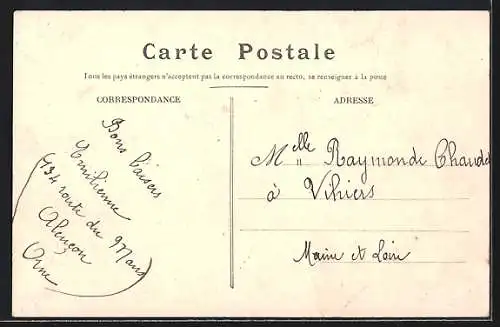 Carte Postale
Tous les pays étrangers n'acceptent pas la correspondance au recto, se renseigner à la poste
CORRESPONDANCE
Bons baisers
Emilienne
134 route du Mans
Alençon
Orne
ADRESSE
Melle Raymonde
à Vihiers
Maine et Loire